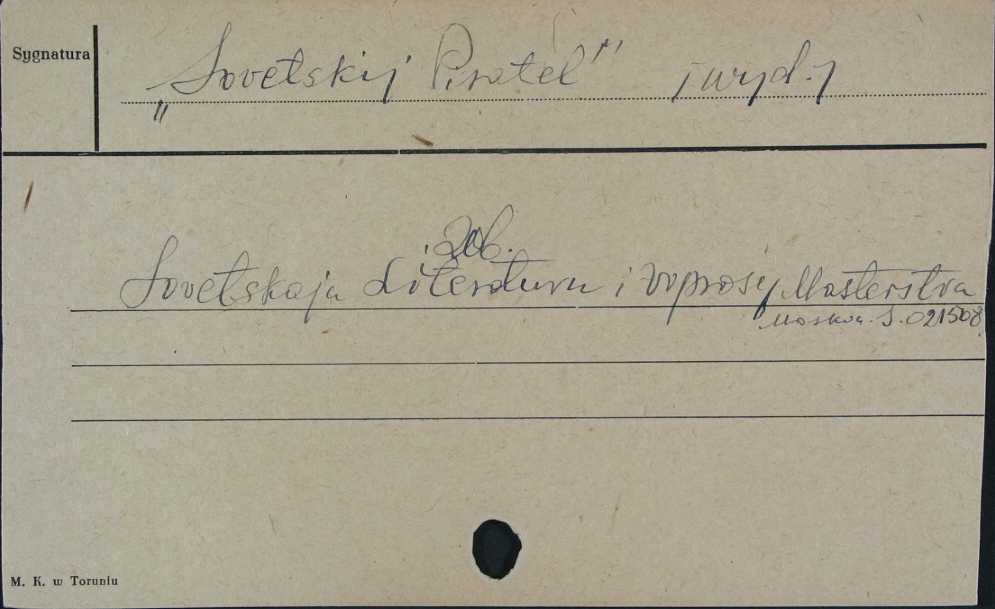 Sygnatura
„Sovetskij Pisatel" [wyd.]
Zob.
Sovetskaja Literatura i voprosy Masterstva
Moskva. S. 021508
M. K. w Toruniu